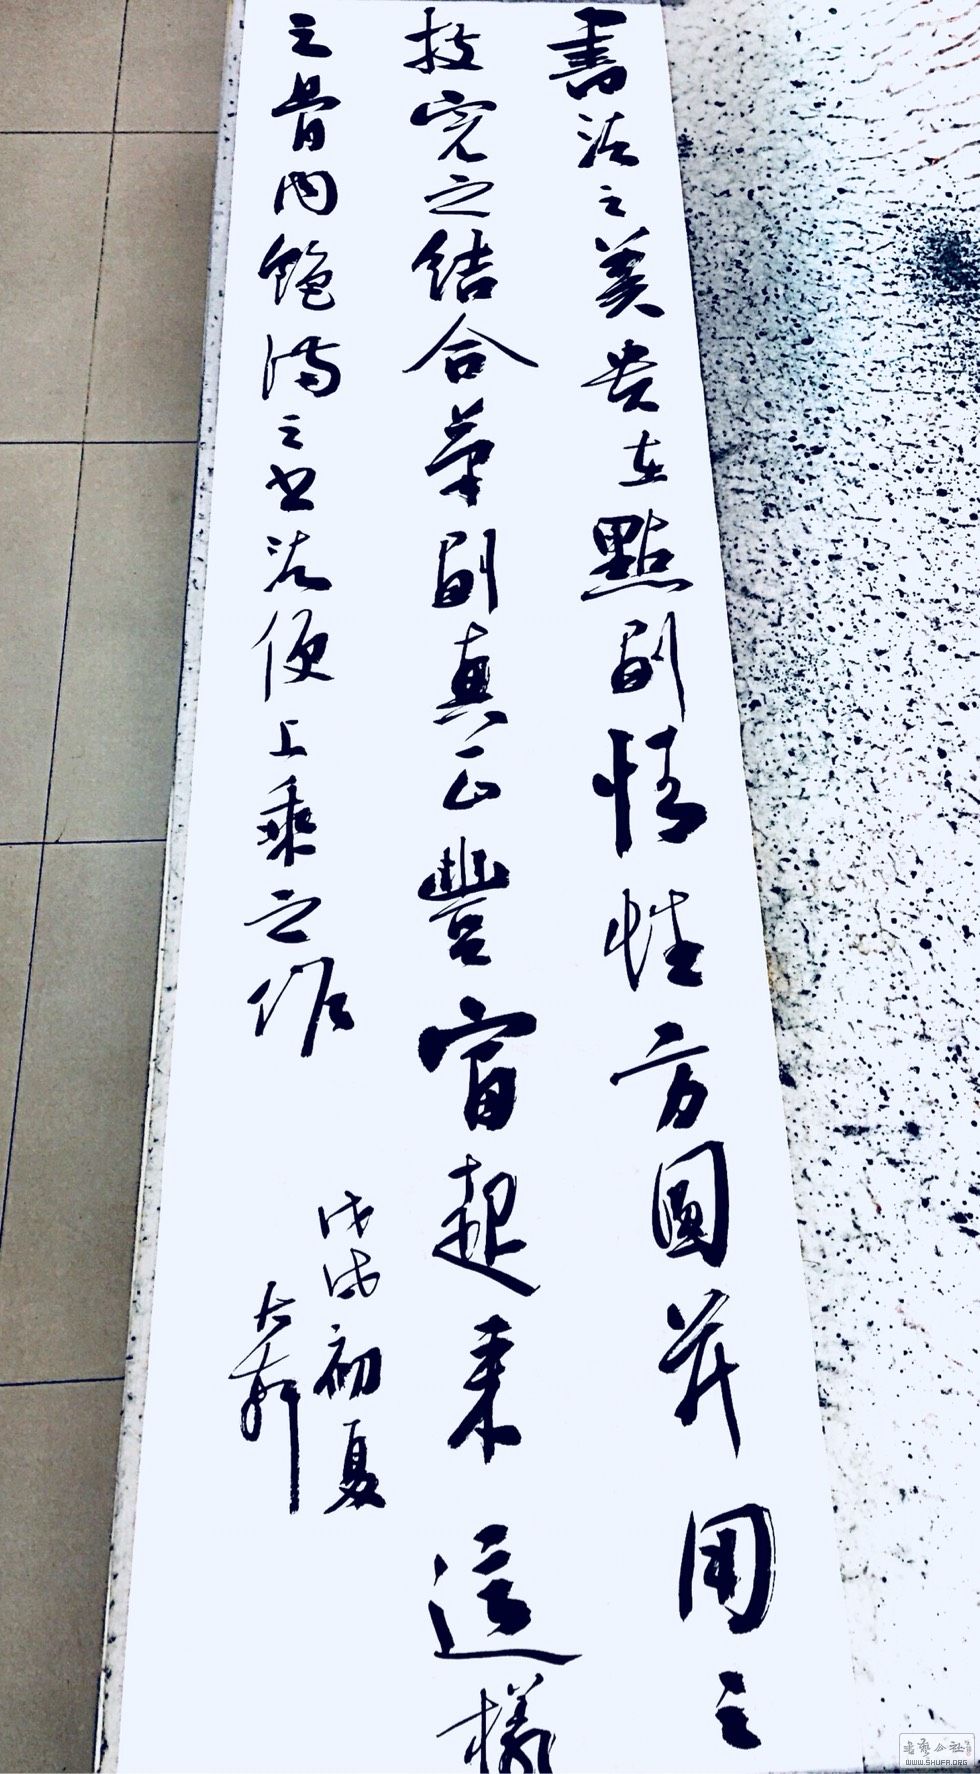 書法之美貴在點劃情性方圓并用之
技完之結合筆劃真正豐富起来這樣
之骨肉飽滿之书法便上乘之作
戊戌初夏
书艺公社
WWW.SHUFA.ORG